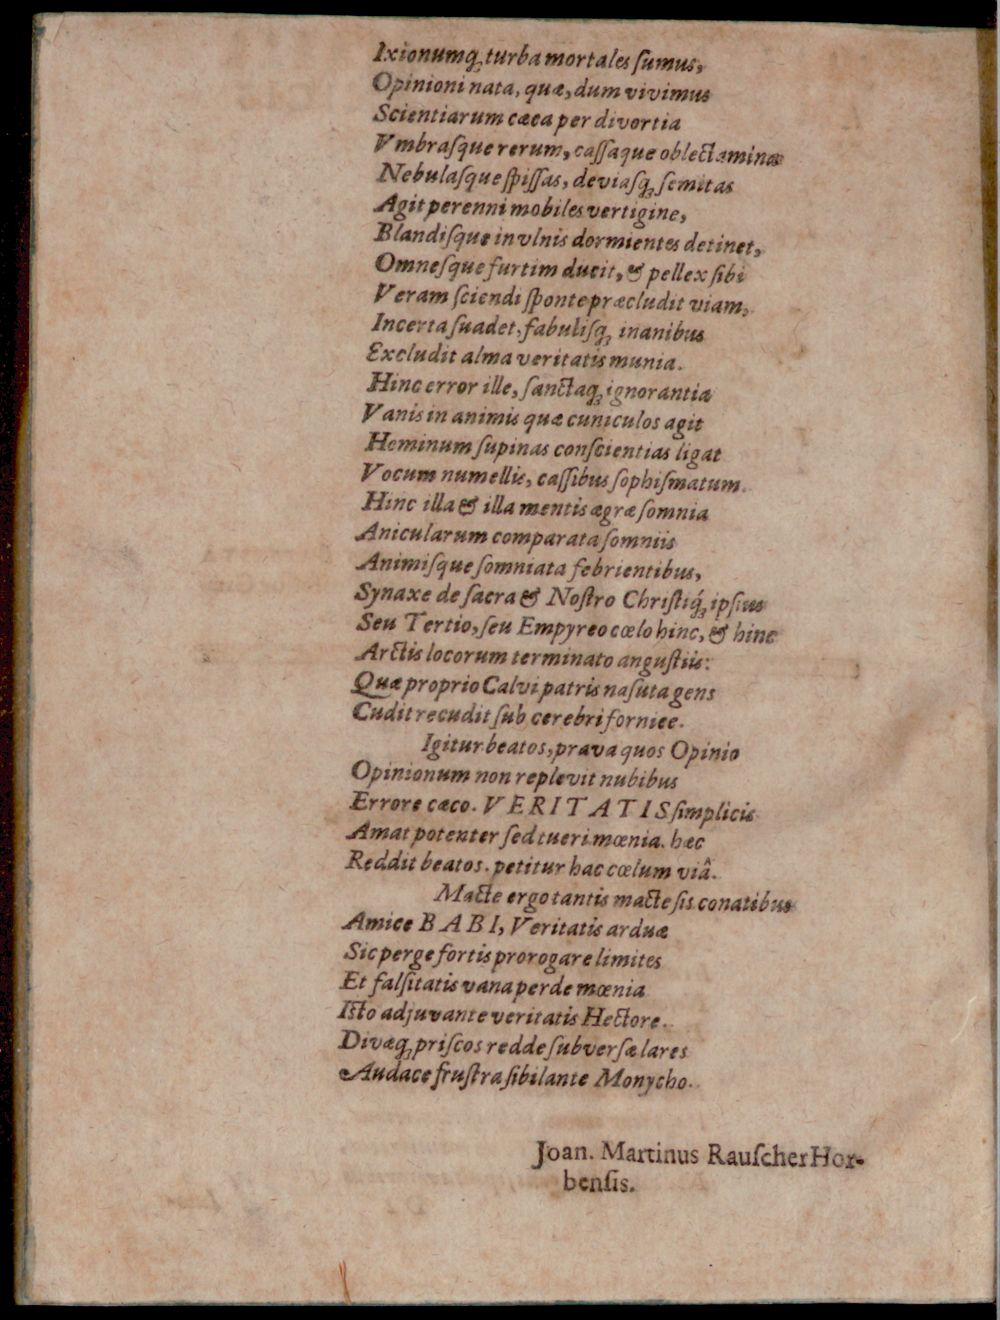 Ixionumq́; turba mortales ſumus,
Opinioni nata, quæ, dum vivimus
Scientiarum cæca per divortia
Vmbraſque rerum, caſſaque oblectamina
Nebulaſque ſpiſſas, deviaſq; ſemitas
Agit perenni mobiles vertigine,
Blandiſque in vlnis dormientes detinet,
Omneſque furtim ducit, & pellex ſibi
Veram ſciendi ſponte præcludit viam,
Incerta ſuadet. fabuliſq; inanibus
Excludit alma veritatis munia.
Hinc error ille, ſanctaq; ignorantia
Vanis in animis quæ cuniculos agit
Heminum ſupinas conſcientias ligat
Vocum numellis, caſſibus ſophiſmatum.
Hinc illa & illa mentis ægræ ſomnia
Anicularum comparata ſomniis
Animiſque ſomniata febrientibus,
Synaxe de ſacra & Noſtro Chriſtiq́; ipſius
Seu Tertio, ſeu Empyreo cœlo hinc, & hinc
Arctis locorum terminato anguſtiis:
Quæ proprio Calvi patris naſuta gens
Cudit recudit ſub cerebri fornice.
Igitur beatos, prava quos Opinio
Opinionum non replevit nubibus
Errore cæco. VERITATIS ſimplicis
Amat potenter ſed tueri mœnia. hæc
Reddit beatos. petitur hac cœlum viâ.
Macte ergo tantis macte ſis conatibus
Amice BABI, Veritatis arduæ
Sic perge fortis prorogare limites
Et falſitatis vana perde mœnia
Iſto adjuvante veritatis Hectore.
Divæq; priſcos redde ſubverſæ lares
Audace fruſtra ſibilante Monycho.
Joan. Martinus Rauſcher Hor-
benſis.